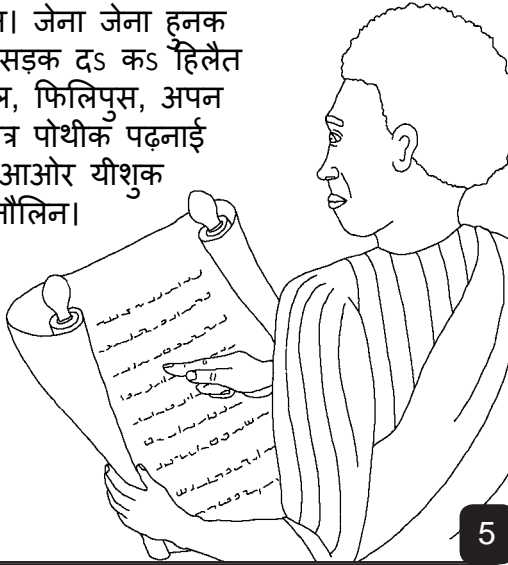 जेना जेना हुनक
सड़क दऽ कऽ हिलैत
फिलिपुस, अपन
पोथीक पढ़नाई
आओर यीशुक
5